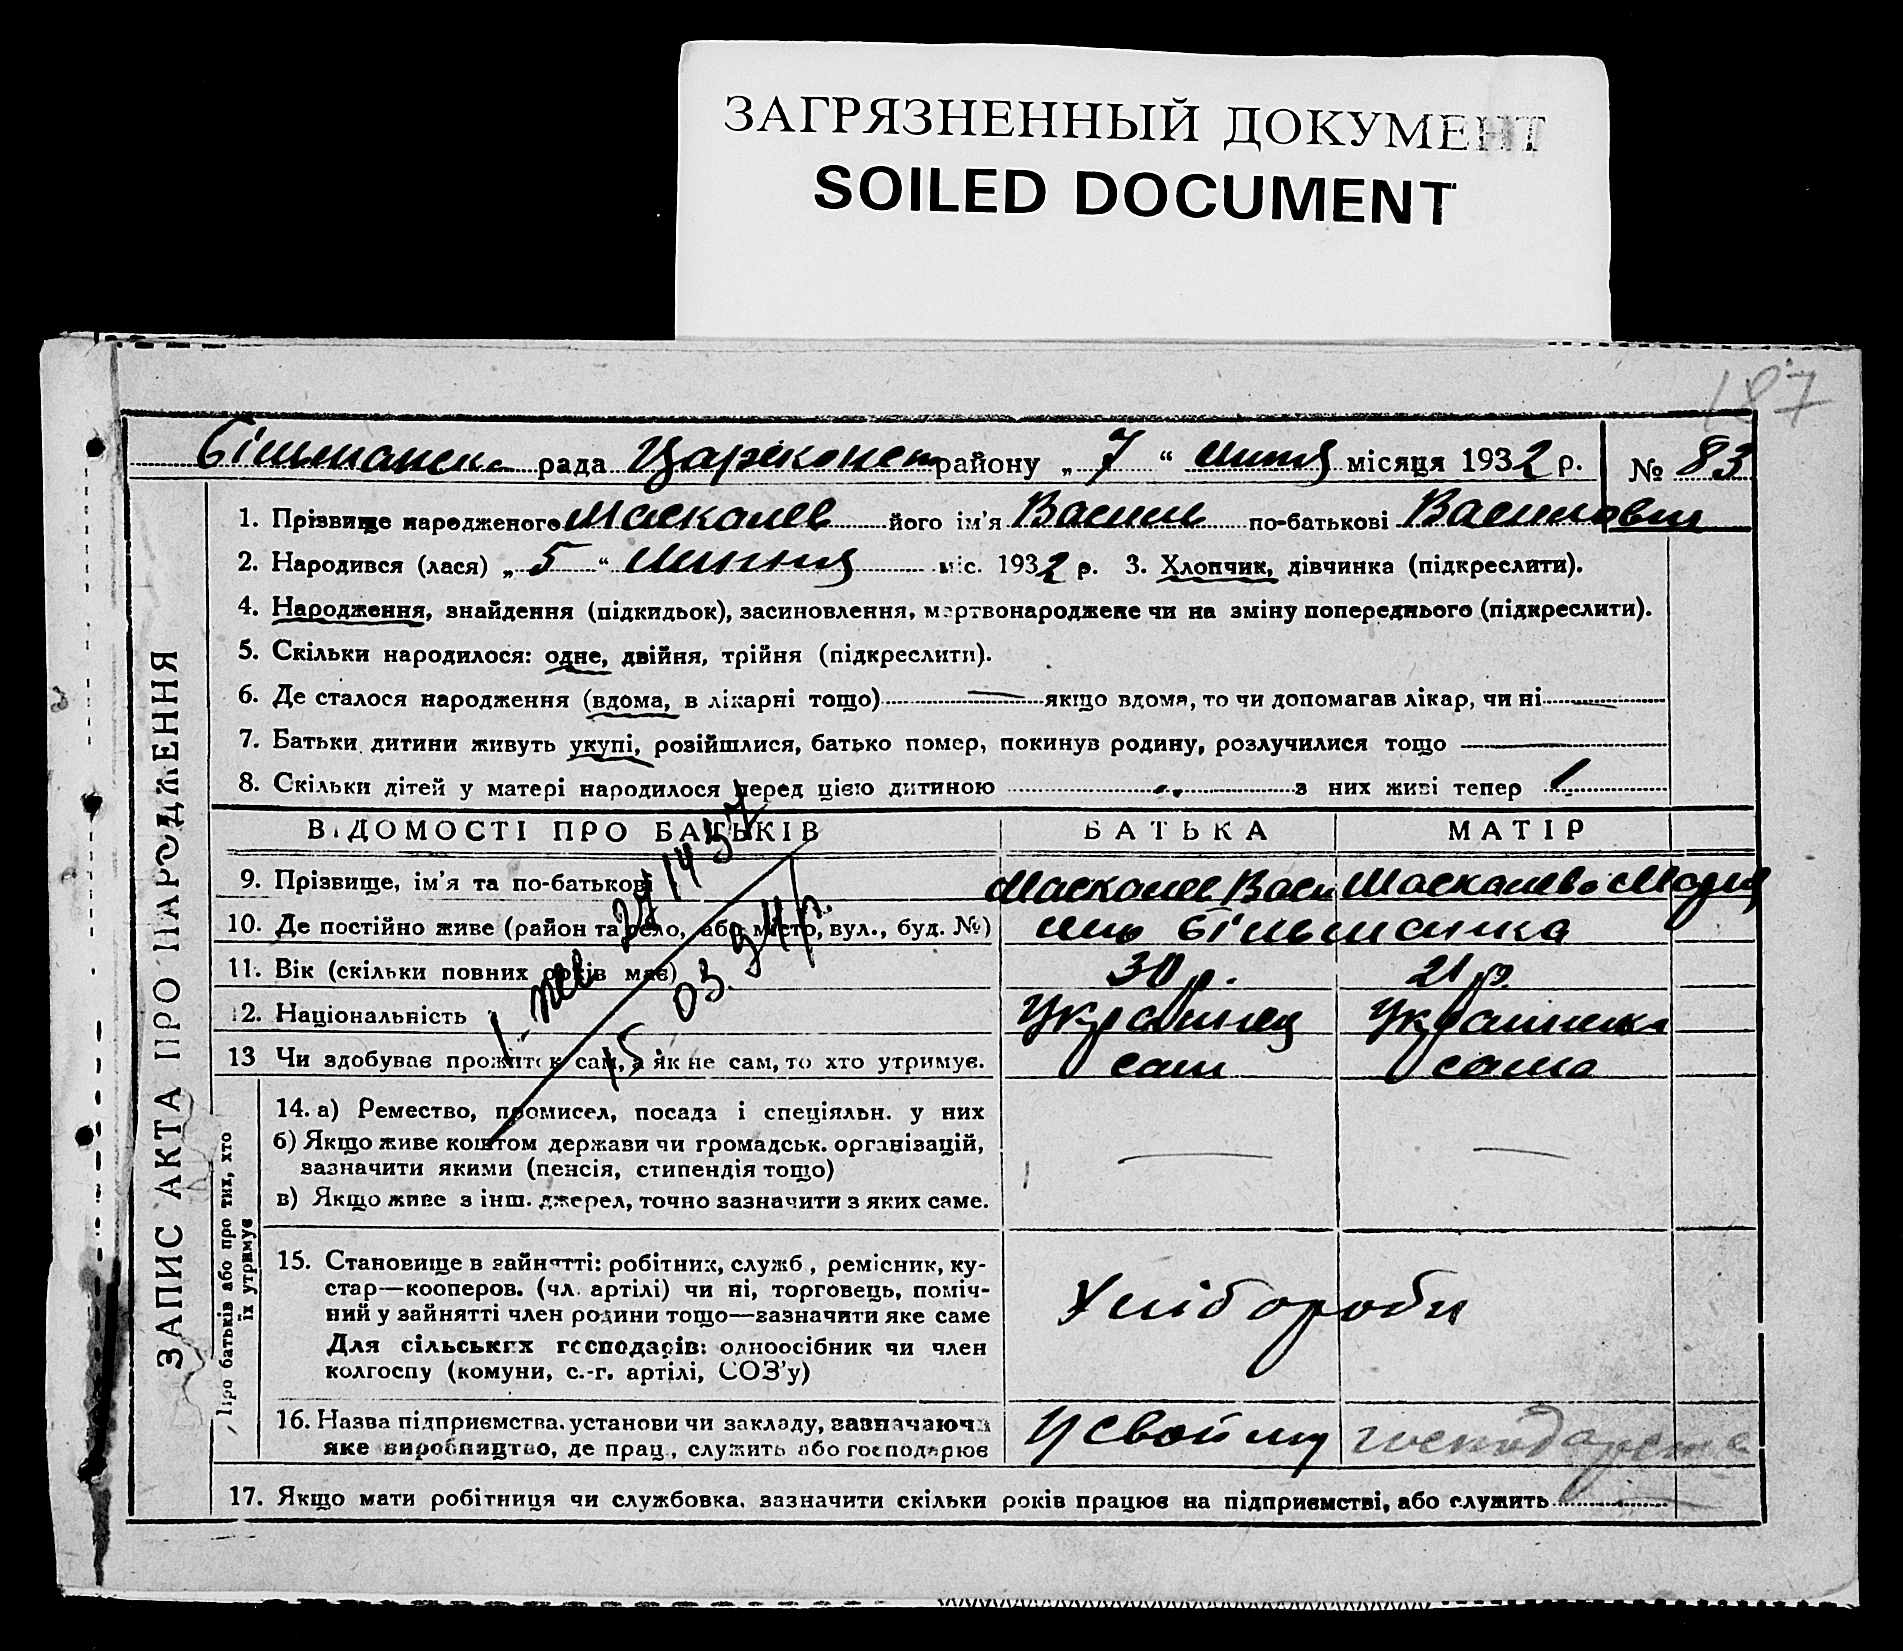 ЗАГРЯЗНЕННЫЙ ДОКУМЕНТ
SOILED DOCUMENT
187
рада району „ 7 “ липня місяця 1932 р. № 83
1. Прізвище народженого Маскалев його ім'я Василь по-батькові Василович
2. Народився (лася) „ 5 “ липня міс. 1932 р. 3. Хлопчик, дівчинка (підкреслити).
4. Народження, знайдення (підкидьок), засиновлення, мертвонароджене чи на зміну попереднього (підкреслити).
5. Скільки народилося: одне, двійня, трійня (підкреслити).
6. Де сталося народження (вдома, в лікарні тощо) — якщо вдома, то чи допомагав лікар, чи ні —
7. Батьки дитини живуть укупі, розійшлися, батько помер, покинув родину, розлучилися тощо —
8. Скільки дітей у матері народилося перед цією дитиною з них живі тепер 1
ВІДОМОСТІ ПРО БАТЬКІВ БАТЬКА МАТІР
9. Прізвище, ім'я та по-батькові Маскалев Васи Маскалева Мария
10. Де постійно живе (район та село, або місто, вул., буд. №) Більшанка
11. Вік (скільки повних років має) 30 р. 21 р.
12. Національність Українец Українька
13 Чи здобуває прожиток сам, а як не сам, то хто утримує. сам сама
14. а) Ремество, промисел, посада і спеціяльн. у них
б) Якщо живе коштом держави чи громадськ. організацій,
зазначити якими (пенсія, стипендія тощо) — —
в) Якщо живе з інш. джерел, точно зазначити з яких саме.
15. Становище в зайнятті: робітник, служб, ремісник, ку-
стар—кооперов. (чл. артілі) чи ні, торговець, поміч-
ний у зайнятті член родини тощо—зазначити яке саме
Хліборобы
Для сільських господарів: одноосібник чи член
колгоспу (комуни, с.-г. артілі, СОЗ'у)
16. Назва підприємства, установи чи закладу, зазначаючи
яке виробництво, де прац., служить або господарює
У свойму господарстве
17. Якщо мати робітниця чи службовка, зазначити скільки років працює на підприємстві, або служить —
ЗАПИС АКТА ПРО НАРОДЖЕННЯ
Про батьків або про тих, хто
їх утримує